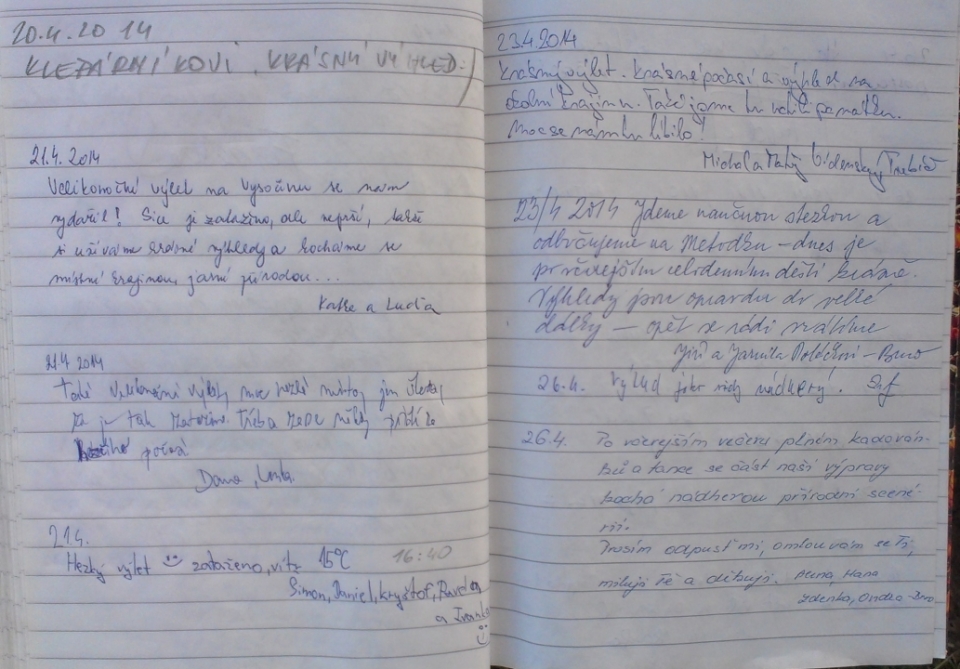 20.4.2014
KRÁSNÝ VÝHLED:)
21.4. 2014
Velikonoční výlet na Vysočinu se nám
vydařil! Sice je zataženo, ale neprší, takže
si užíváme krásné výhledy a kocháme se
místní krajinou, jarní přírodou...
Katka a Lucka
21.4 2014
Také Velikonoční výlety moc hezké místo, jen škoda
že je tak zataženo. Třeba zase někdy přijde
počasí
Dana,
21.4.
Hezký výlet zataženo, vítr 15°C 16:40
Simon, Daniel, Kryštof, Pavel
a Ivanka
23.4.2014
Krásný výlet. Krásné počasí a výhled na
okolní krajinu. Také jsme tu
Moc se nám tu líbilo!
Michal a
23/4 2014 Jdeme naučnou stezkou a
odbočujeme na Metodku – dnes je
po včerejším celodenním dešti krásně.
Výhledy jsou opravdu do velké
dálky – opět se rádi vrátíme
Jiří a Jarmila – Brno
26.4. Výhled jako vždy nádherný.
26.4. Po včerejším večeru plném
a tance se část naší výpravy
kochá nádherou přírodní scené-
rií.
Prosím odpusť mi, omlouvám se Ti,
miluji Tě a děkuji. Alena, Hana
Zdenka, Ondra